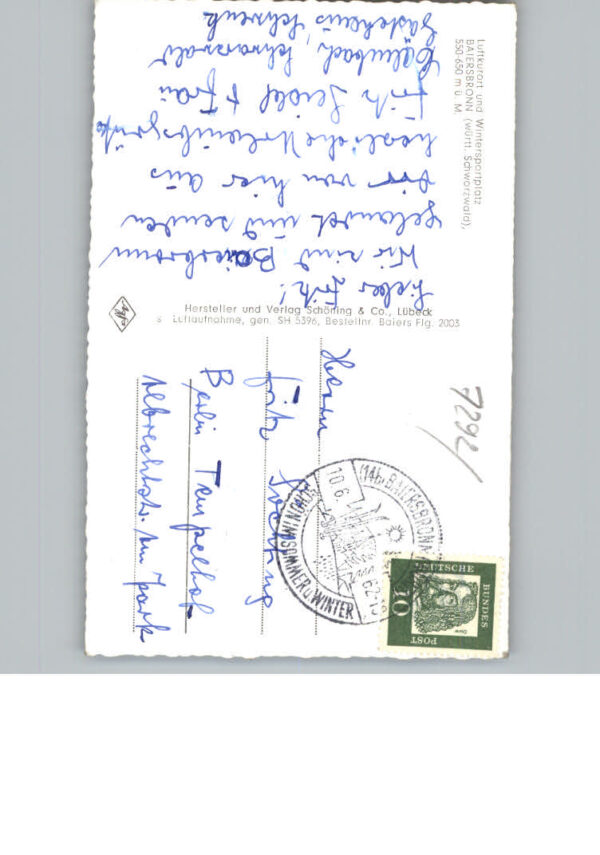 Luftkurort und Wintersportplatz
BAIERSBRONN (württ. Schwarzwald),
550-650 m ü. M.
Lieber Fritz!
Wir sind Baiersbronn
gelandet und senden
Dir von hier aus
herzliche Urlaubsgrüße
Fritz Seidel + Frau
Schwarzwald
Gästehaus Schrenk
Hersteller und Verlag Schöning & Co., Lübeck
Luftaufnahme, gen. SH 5396, Bestellnr. Baiers Flg. 2003
Agfa
7292/
Herrn
Fritz
Berlin Tempelhof
Albrechtstr. Am Park
(14b) BAIERSBRONN
SOMMER U WINTER
10.6.
DEUTSCHE
BUNDES
POST
10